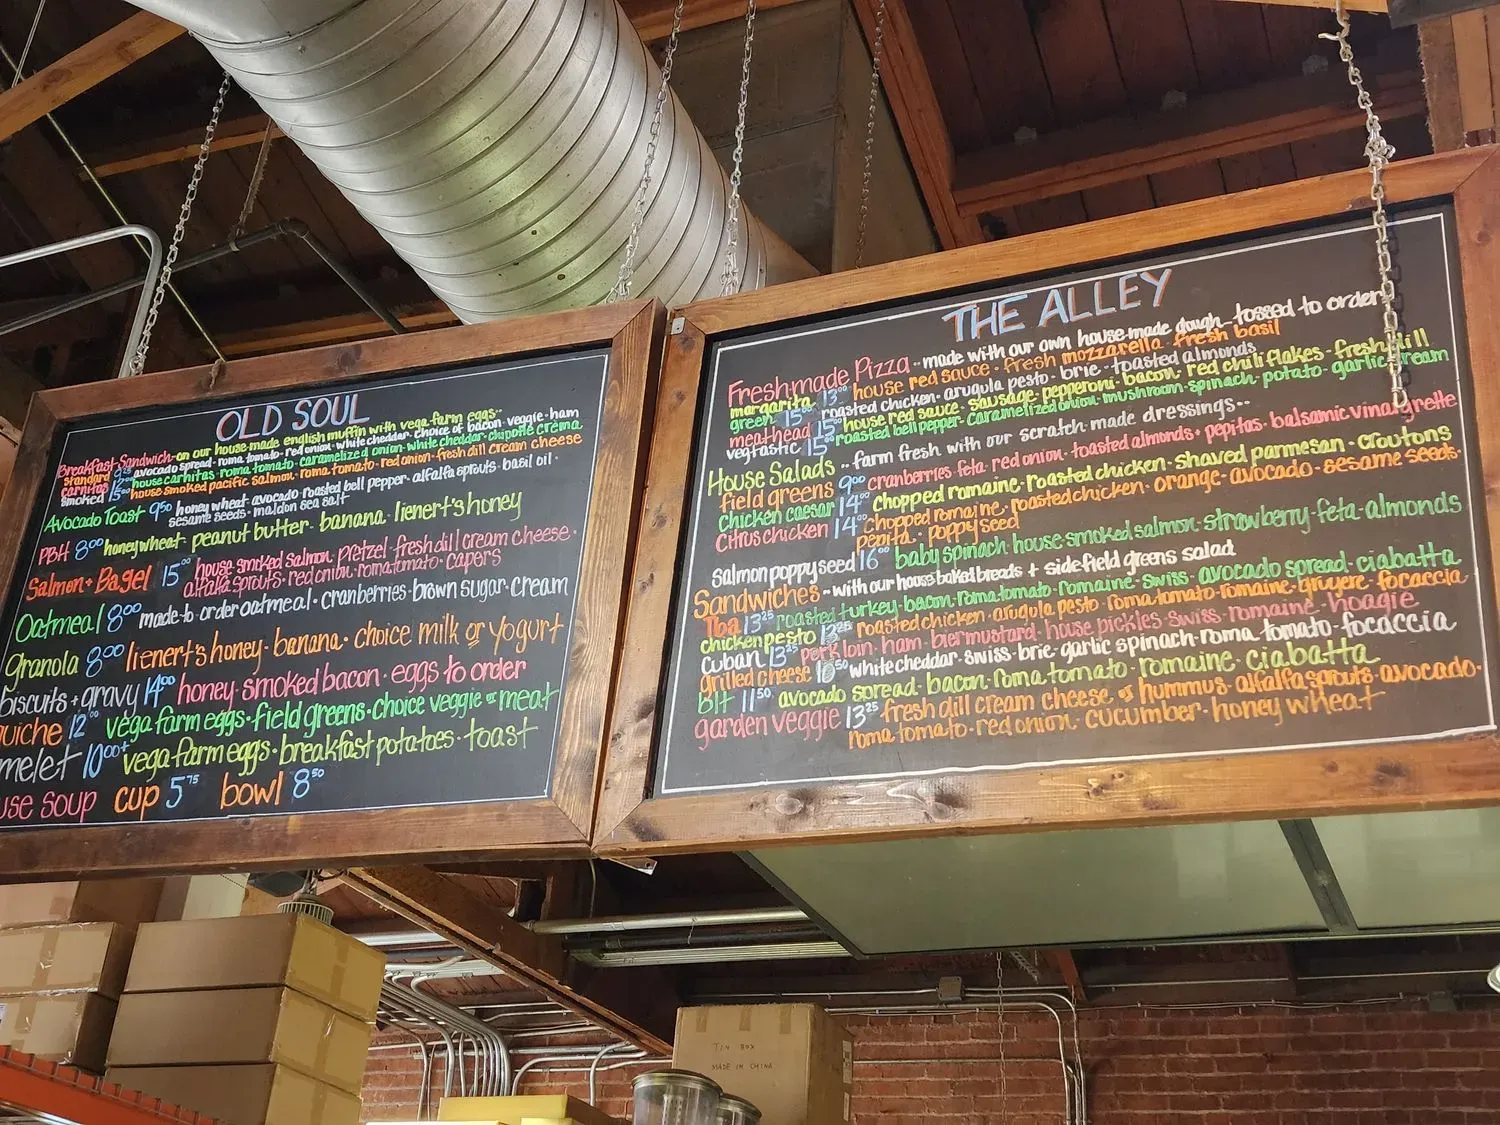 OLD SOUL
Breakfast Sandwich-on our house-made english muffin with vega farm eggs..
standard avocado spread·roma tomato·red onion·white cheddar·choice of bacon·veggie·ham
carnitas house carnitas·roma tomato·caramelized onion·white cheddar·chipotle crema
smoked 15⁰⁰ house smoked pacific salmon·roma tomato·red onion·fresh dill cream cheese
Avocado Toast 9⁵⁰ honey wheat·avocado·roasted bell pepper·alfalfa sprouts·basil oil·
sesame seeds·maldon sea salt
PBH 8⁰⁰ honeywheat·peanut butter·banana·lienert's honey
Salmon+Bagel 15⁰⁰ house smoked salmon·pretzel·fresh dill cream cheese·
alfalfa sprouts·red onion·roma tomato·capers
Oatmeal 8⁰⁰ made-to-order oatmeal·cranberries·brown sugar·cream
Granola 8⁰⁰ lienert's honey·banana·choice milk or yogurt
biscuits+gravy 14⁰⁰ honey·smoked bacon·eggs to order
uiche 12⁰⁰ vega farm eggs·field greens·choice veggie or meat
melet 10⁰⁰+ vega farm eggs·breakfast potatoes·toast
use soup cup 5⁷⁵ bowl 8⁵⁰
THE ALLEY
Freshmade Pizza..made with our own house-made dough tossed to order
margarita 13⁰⁰ house red sauce·fresh mozzarella·fresh basil
green 15⁰⁰ roasted chicken·arugula pesto·brie·toasted almonds
meathead 15⁰⁰ house red sauce·sausage·pepperoni·bacon·red chili flakes·fresh dill
vegtastic 15⁰⁰ roasted bell pepper·caramelized onion·mushroom·spinach·potato·garlic cream
House Salads..farm fresh with our scratch-made dressings..
field greens 9⁰⁰ cranberries·feta·red onion·toasted almonds·pepitas·balsamic vinaigrette
chicken caesar 14⁰⁰ chopped romaine·roasted chicken·shaved parmesan·croutons
Citrus chicken 14⁰⁰ chopped romaine·roasted chicken·orange·avocado·sesame seeds·
pepita·poppyseed
Salmon poppyseed 16⁰⁰ baby spinach·house smoked salmon·strawberry·feta·almonds
Sandwiches..with our house baked breads + side field greens salad
Tba 13²⁵ roasted turkey·bacon·roma tomato·romaine·swiss·avocado spread·ciabatta
chicken pesto 13²⁵ roasted chicken·arugula pesto·roma tomato·romaine·gruyere·focaccia
Cuban 13²⁵ pork loin·ham·bier mustard·house pickles·swiss·romaine·hoagie
grilled cheese 10⁵⁰ white cheddar·swiss·brie·garlic spinach·roma tomato·focaccia
blt 11⁵⁰ avocado spread·bacon·roma tomato·romaine·ciabatta
garden veggie 13²⁵ fresh dill cream cheese or hummus·alfalfa sprouts·avocado·
roma tomato·red onion·cucumber·honey wheat
TIN BOX
MADE IN CHINA